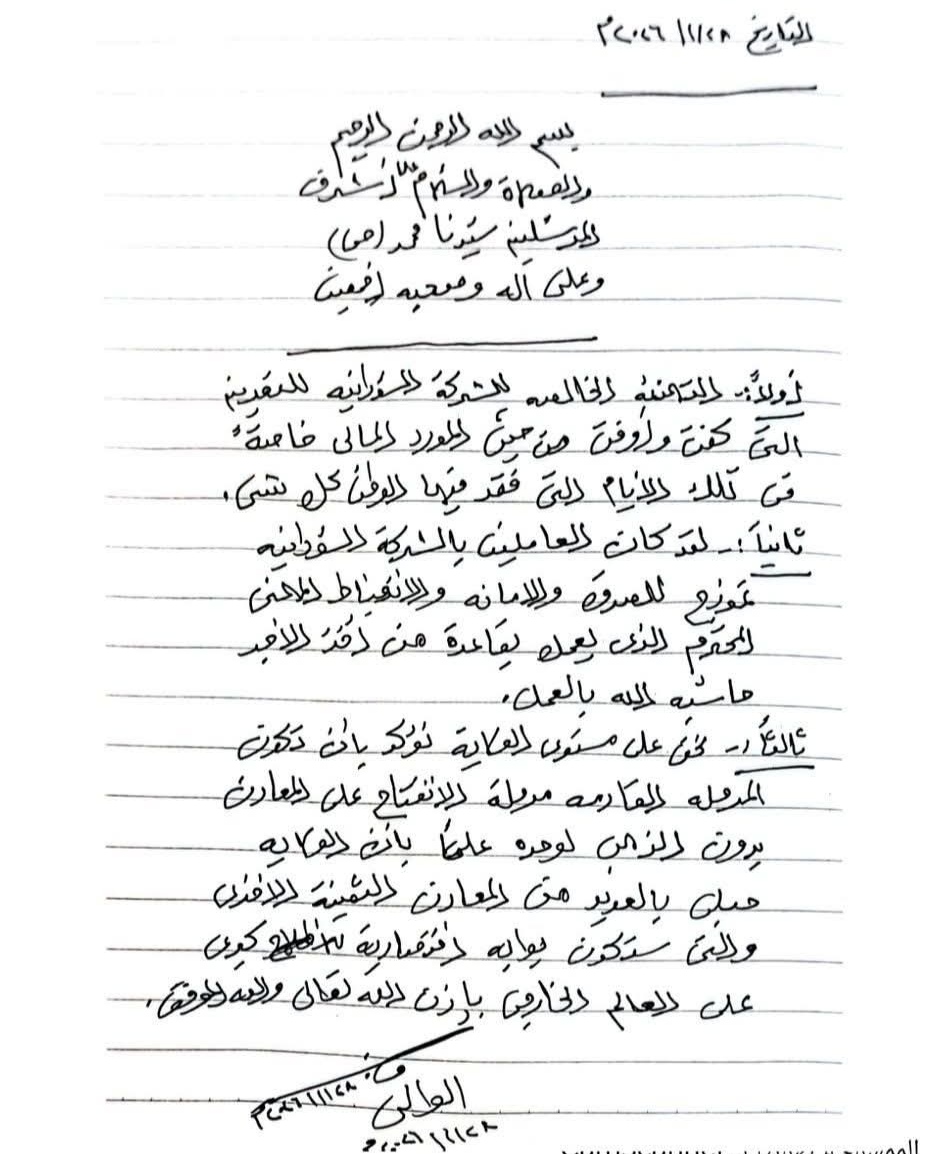 التاريخ ٢٨/١/٢٠٢٦م
بسم الله الرحمن الرحيم
والصلاة والسلام على أشرف
المرسلين سيدنا محمد (ص)
وعلى آله وصحبه أجمعين
أولاً:- التهنئه الخالصه للشركة السودانيه للتعدين
التى كفت وأوفت من حيث المورد المالى خاصةً
فى تلك الأيام التى فقد فيها الوطن كل شى.
ثانياً:- لقد كان العاملين بالشركة السودانيه
نموزج للصدق والامانه والانضباط المهنى
المحترم الذى يعمل بقاعدة من أخذ الأجر
حاسبه الله بالعمل.
ثالثاً:- نحن على مستوى الولاية نؤكد بان تكون
المرحله القادمه مرحلة الانفتاح على المعادن
بدون الذهب لوحده علماً بان الولايه
حبلى بالعديد من المعادن الثمينة الأخرى
والتى ستكون بوابه اقتصارية كبرى
على العالم الخارجى بإذن الله تعالى والله الموفق.
الوالى
٢٨/١/٢٠٢٦م
٢٨/١/٢٠٢٦